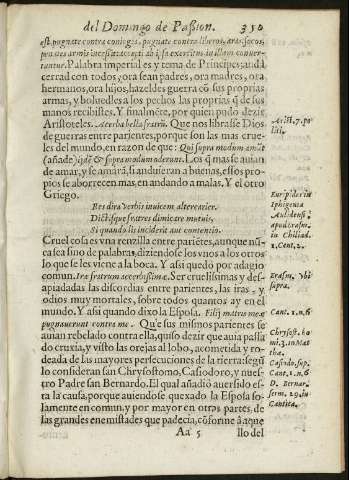 del Domingo de Passion. 350
est. pugnate contra coniuges, pugnate contra liberos, aras, focos,
tantur. Palabra imperial es y tema de Principes; anda
cerrad con todos, ora sean padres, ora madres, ora
hermanos, ora hijos, hazeldes guerra cõ sus proprias
armas, y boluedles a los pechos las proprias q̃ de sus
manos recibistes. Y finalmẽte, por quien pudo dezir
Aristoteles. Acerba bella fratrũ. Que nos librasse Dios
de guerras entre parientes, porque son las mas crue-
les del mundo, en razon de que: Qui supra modum amãt
(añade) ijdẽ & supra modum oderunt. Los q̃ mas se auian
de amar, y se amarã, si anduieran a buenas, essos pro-
pios se aborrecen mas, en andando a malas. Y el otro
Griego.
Res dira verbis inuicem altercarier.
Dictisque fratres dimicare mutuis,
Si quando lis inciderit aut contentio.
Cruel cosa es vna renzilla entre pariẽtes, aunque nũ-
ca sea sino de palabras, diziendose los vnos a los otros
lo que se les viene a la boca. Y assi quedò por adagio
comun. Ira fratrum acerbissima. Ser cruelissimas y des-
apiadadas las discordias entre parientes, las iras, y
odios muy mortales, sobre todos quantos ay en el
mundo. Y assi quando dixo la Esposa. Filij matris meæ
pugnauerunt contra me. Que sus mismos parientes se
auian rebelado contra ella, quiso dezir que auia passa
do cruxia, y visto las orejas al lobo, acometida y ro-
deada de las mayores persecuciones de la tierra: segũ
lo consideran san Chrysostomo, Casiodoro, y nues-
tro Padre san Bernardo. El qual añadiò auer sido es-
ta la causa, porque auiendose quexado la Esposa so-
lamente en comun, y por mayor en otras partes, de
las grandes enemistades que padecia, cõforme à aque
Aa 5 llo del
Arist. 7. po
lit.
Euripides in
Iphigenia
Aulidensi:
apud erasm.
in Chiliad.
1. Cent. 2.
Erasm. vbi
supra.
Cant. 1. n. 6
Chrysost. ho
mi. 3. in Mat
tha.
Casiodo. sup.
Cant. 1. n. 6
D. Bernar.
serm. 29. in
Cantica.